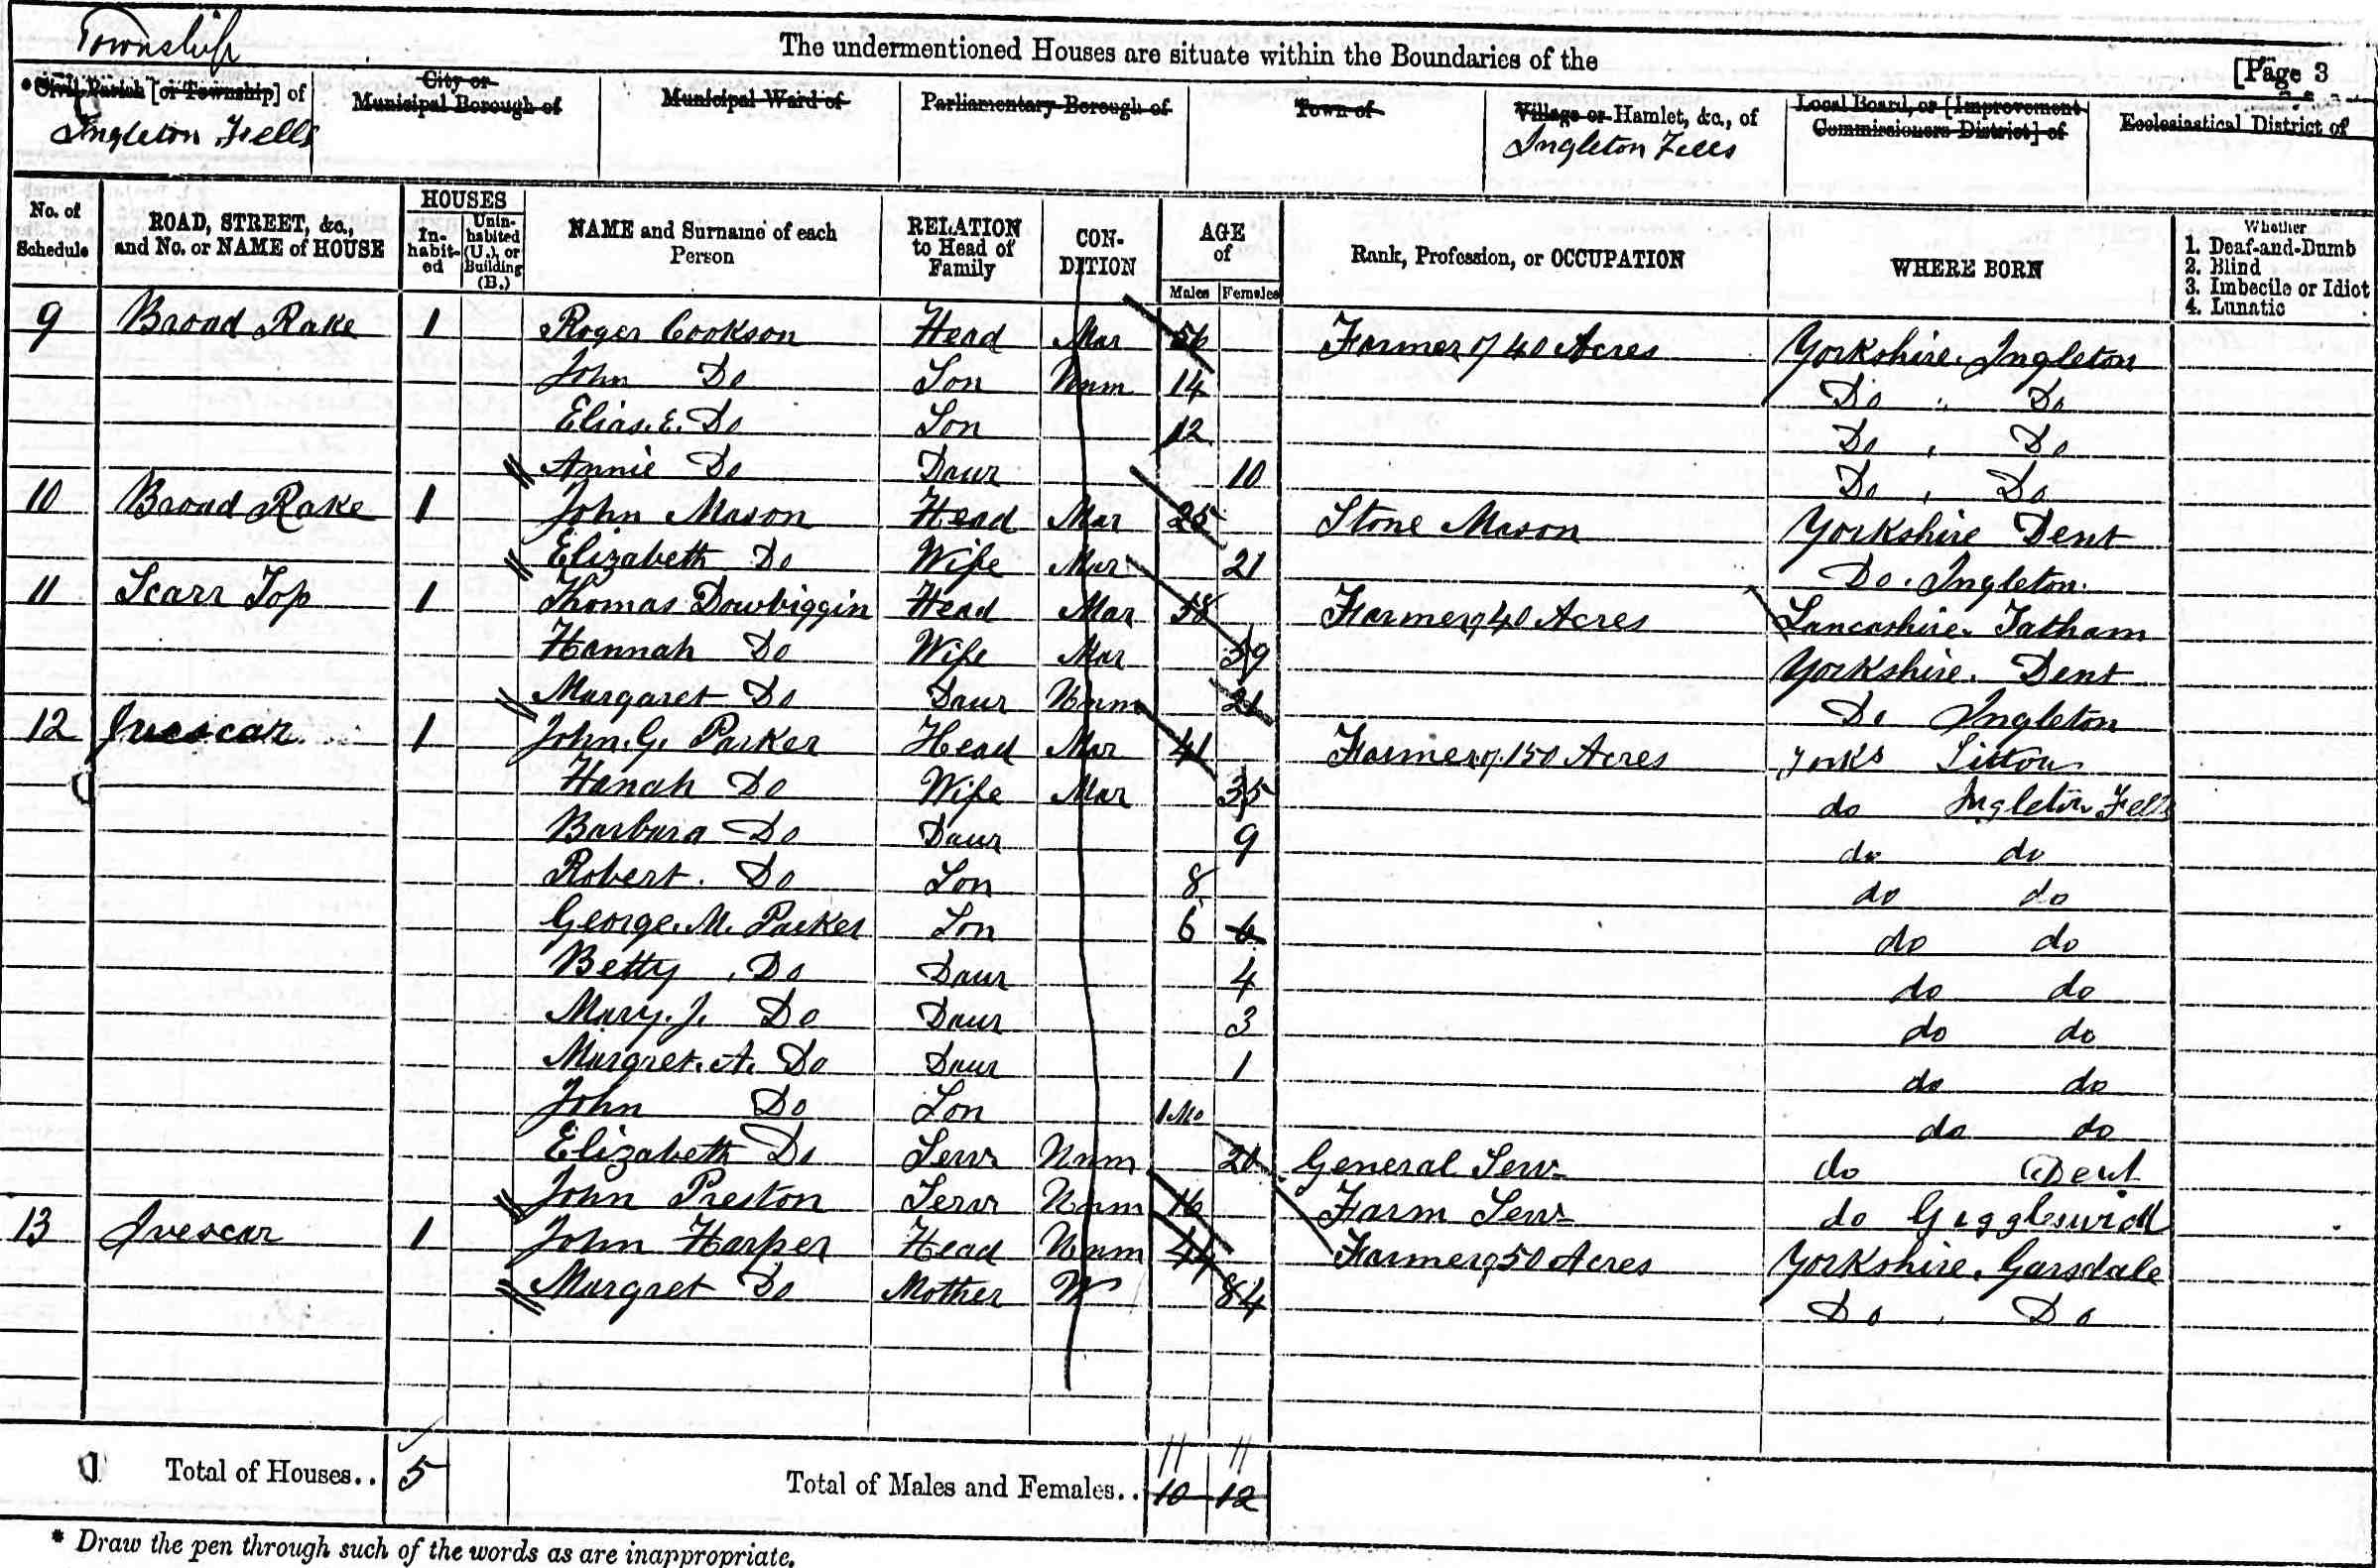 Township
The undermentioned Houses are situate within the Boundaries of the
[Page 3
*Civil Parish [or Township] of
City or Municipal Borough of
Municipal Ward of
Parliamentary Borough of
Town of
Village or Hamlet, &c., of
Local Board, or [Improvement Commissioners District] of
Ecclesiastical District of
Ingleton Fells
Ingleton Fells
No. of Schedule
ROAD, STREET, &c., and No. or NAME of HOUSE
HOUSES
In-habit-ed
Unin-habited (U.), or Building (B.)
NAME and Surname of each Person
RELATION to Head of Family
CON-DITION
AGE of
Males Females
Rank, Profession, or OCCUPATION
WHERE BORN
Whether
1. Deaf-and-Dumb
2. Blind
3. Imbecile or Idiot
4. Lunatic
9 Broad Rake 1 Roger Cookson Head Mar 56 Farmer of 40 Acres Yorkshire. Ingleton
John Do Son Unm 14 Do " Do
Elias. E. Do Son 12 Do , Do
Annie Do Daur 10 Do , Do
10 Broad Rake 1 John Mason Head Mar 25 Stone Mason Yorkshire Dent
Elizabeth Do Wife Mar 21 Do. Ingleton.
11 Scarr Top 1 Thomas Dowbiggin Head Mar 58 Farmer of 40 Acres Lancashire. Tatham
Hannah Do Wife Mar 59 Yorkshire. Dent
Margaret Do Daur Unm 21 Do Ingleton
12 Ivescar 1 John. G. Parker Head Mar 41 Farmer of 150 Acres Yorks Litton
Hanah Do Wife Mar 35 do Ingleton Fells
Barbara Do Daur 9 do do
Robert. Do Son 8 do do
George. M. Parker Son 6 6 do do
Betty , Do Daur 4 do do
Mary. J. Do Daur 3 do do
Margret. A. Do Daur 1 do do
John Do Son 1 Mo do do
Elizabeth Do Serv Unm 20 General Serv do Dent
John Preston Serv Unm 16 Farm Serv do Giggleswick
13 Ivescar 1 John Harper Head Unm 44 Farmer of 50 Acres Yorkshire. Garsdale
Margret Do Mother W 84 Do , Do
11 11
Total of Houses.. 5 Total of Males and Females.. 10 12
* Draw the pen through such of the words as are inappropriate.